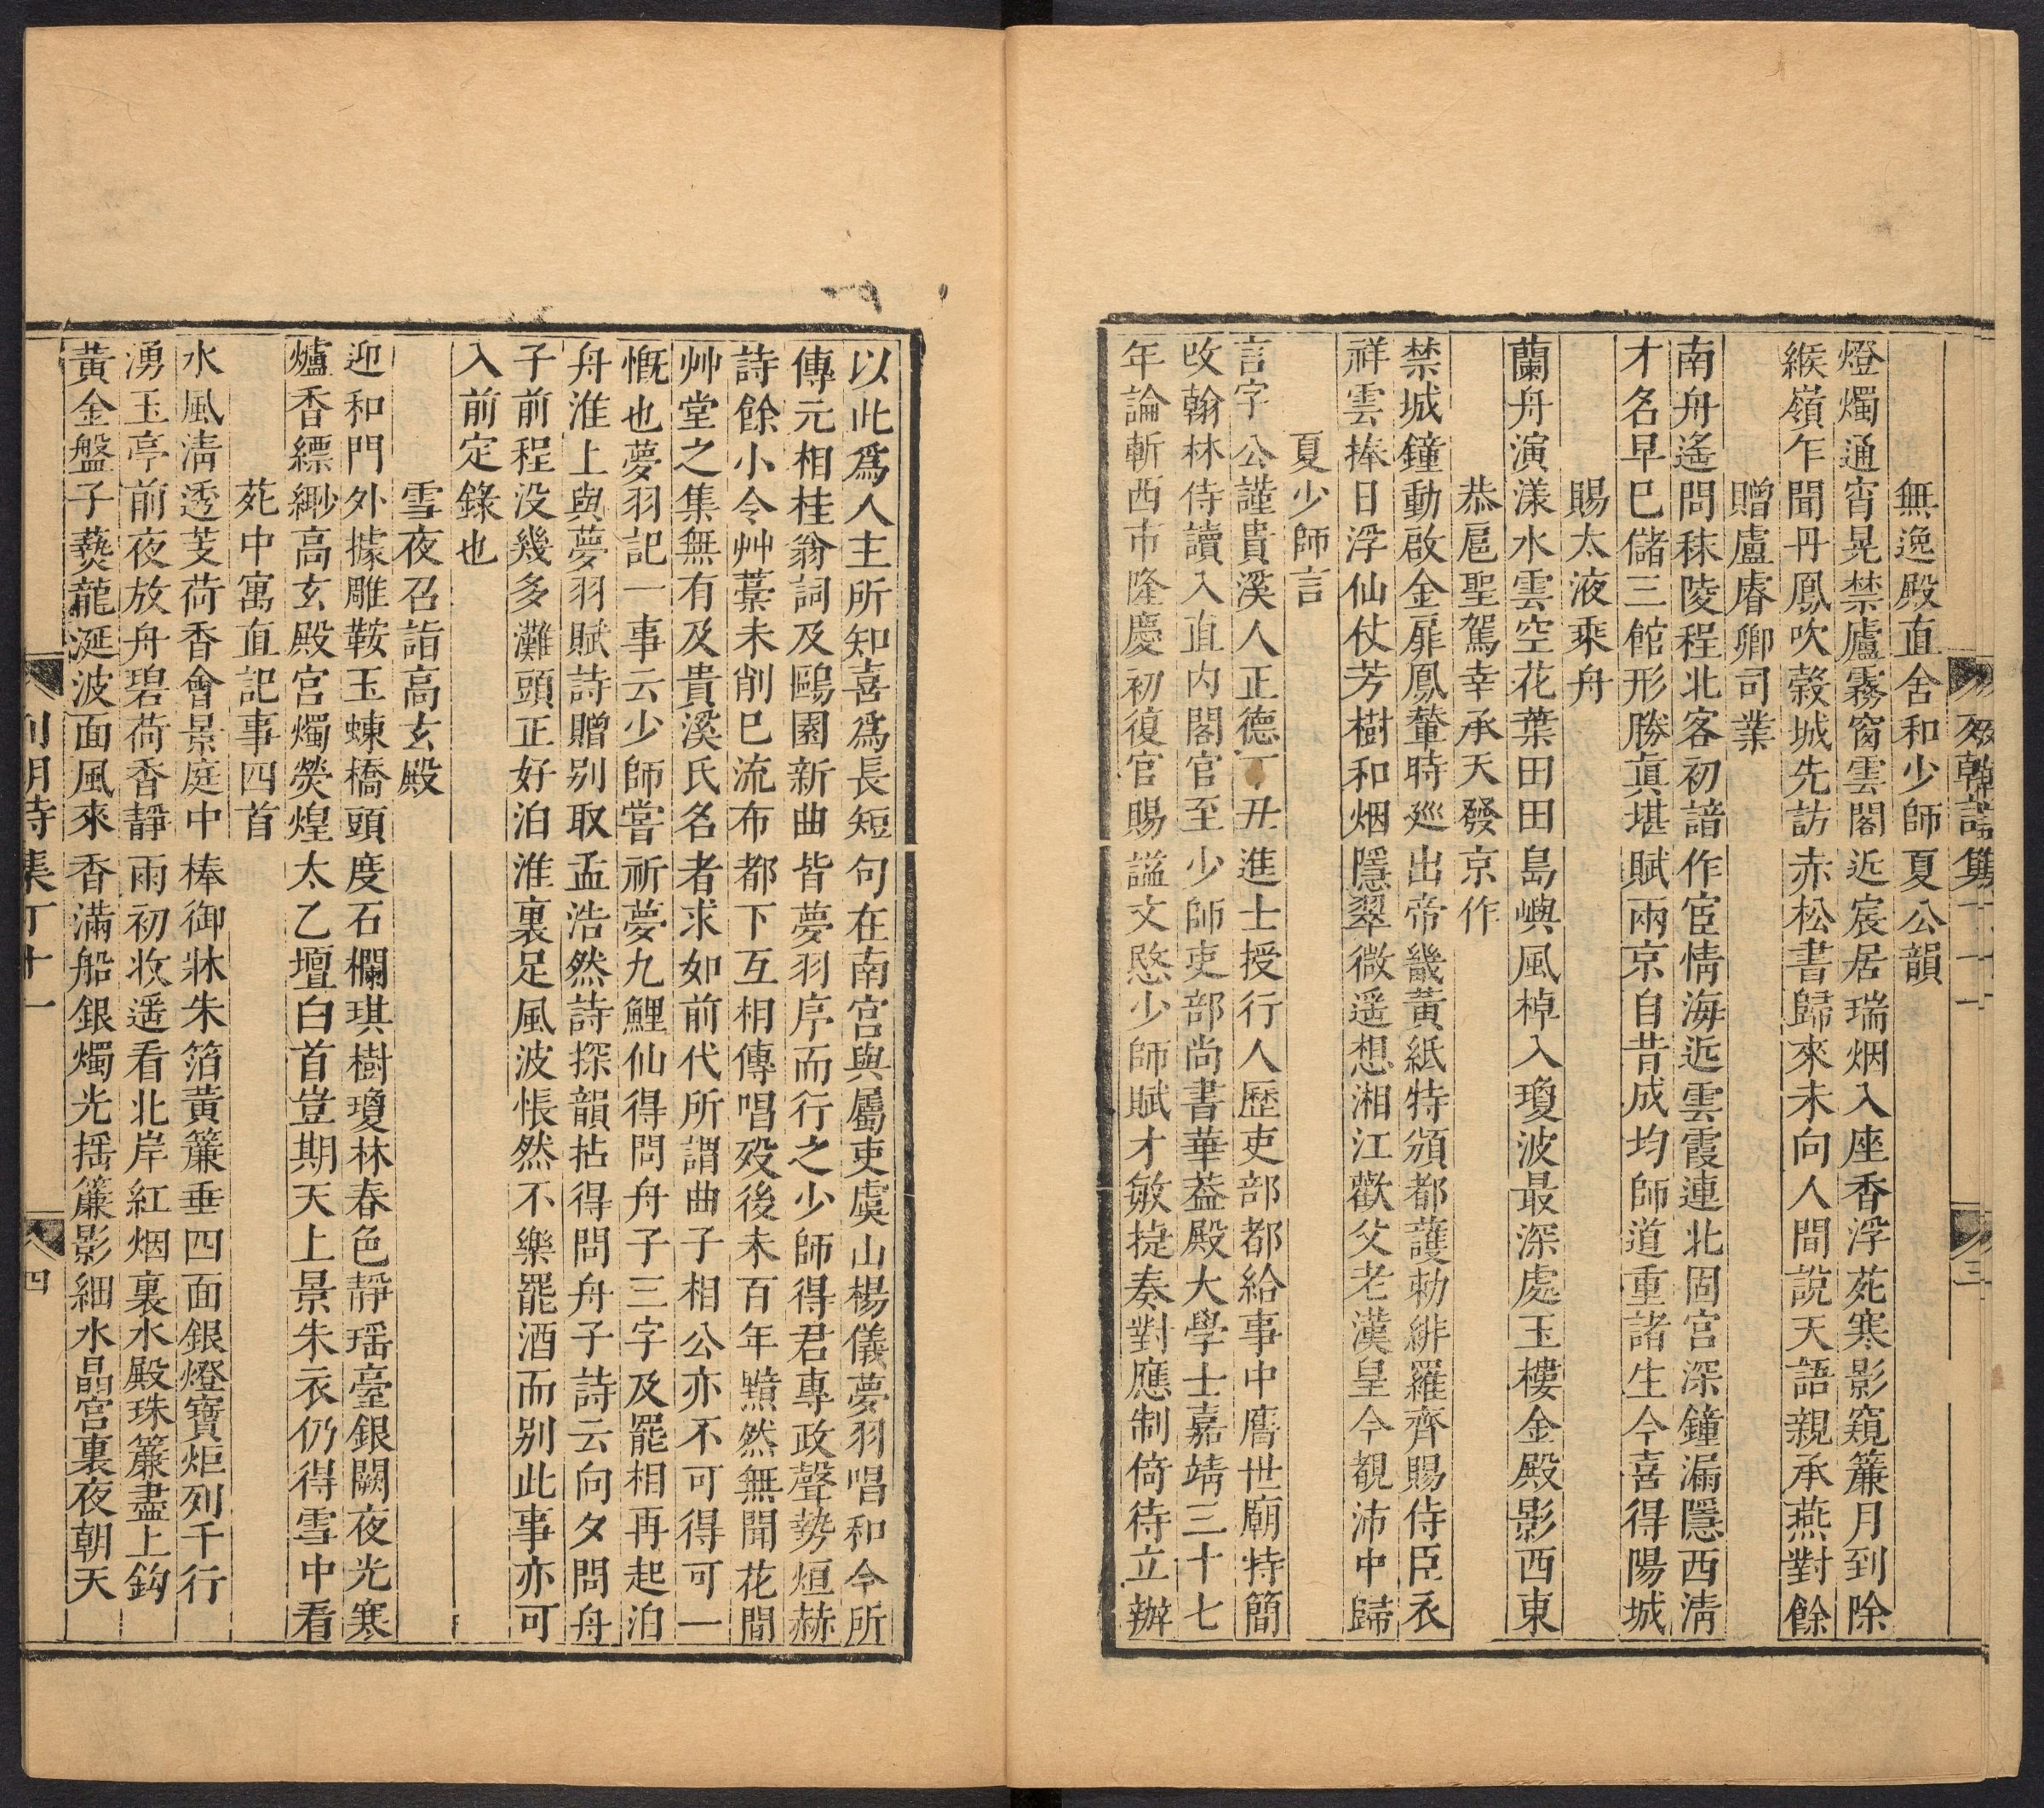 無逸殿直舍和少師夏公韻
燈燭通宵晃禁廬霧窗雲閣近宸居瑞烟入座香浮苑寒影窺簾月到除
緱嶺乍聞丹鳳吹榖城先訪赤松書歸來未向人間說天語親承燕對餘
贈盧㕡卿司業
南舟遙問秣陵程北客初諳作宦情海近雲霞連北固宫深鐘漏隱西清
才名早巳儲三館形勝眞堪賦兩京自昔成均師道重諸生今喜得陽城
賜太液乘舟
蘭舟演漾水雲空花葉田田島嶼風棹入瓊波最深處玉樓金殿影西東
恭扈聖駕幸承天發京作
禁城鐘動啟金扉鳳輦時廵出帝畿黃紙特頒都護勅緋羅齊賜侍臣衣
祥雲捧日浮仙仗芳樹和烟隱翠微遥想湘江歡父老漢皇今覩沛中歸
夏少師言
言字公謹貴溪人正德丁丑進士授行人歷吏部都給事中膺世廟特簡
攺翰林侍讀入直内閣官至少師吏部尚書華葢殿大學士嘉靖三十七
年論斬西市隆慶初復官賜諡文愍少師賦才敏捷奏對應制倚待立辦
三
以此爲人主所知喜爲長短句在南宫與屬吏虞山楊儀夢羽唱和今所
傳元相桂翁詞及鷗園新曲皆夢羽序而行之少師得君專政聲勢烜赫
詩餘小令艸藁未削巳流布都下互相傳唱歿後未百年黯然無聞花間
艸堂之集無有及貴溪氏名者求如前代所謂曲子相公亦不可得可一
慨也夢羽記一事云少師嘗祈夢九鯉仙得問舟子三字及罷相再起泊
舟淮上與夢羽賦詩贈别取孟浩然詩探韻拈得問舟子詩云向夕問舟
子前程没幾多灘頭正好泊淮裏足風波悵然不樂罷酒而别此事亦可
入前定錄也
雪夜召詣高玄殿
迎和門外據雕鞍玉蝀橋頭度石欄琪樹瓊林春色靜瑶臺銀闕夜光寒
爐香縹緲高玄殿宫燭熒煌太乙壇白首豈期天上景朱衣仍得雪中看
苑中寓直記事四首
水風淸透芰荷香會景庭中棒御牀朱箔黄簾垂四面銀燈寶炬列千行
湧玉亭前夜放舟碧荷香靜雨初收遥看北岸紅烟裏水殿珠簾盡上鈎
黃金盤子爇龍涎波面風來香滿船銀燭光揺簾影細水晶宫裏夜朝天
列朝詩集丁十一
四